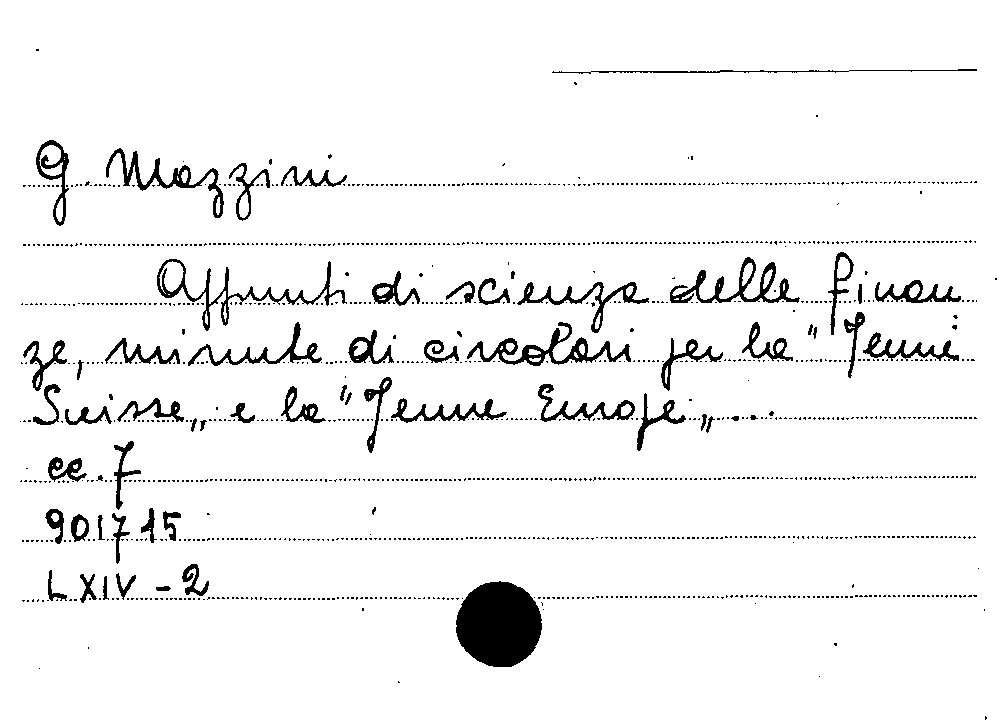 G. Mazzini
Appunti di scienza delle finan
ze, minute di circolari per la "Jeune
Suisse„ e la "Jeune Europe„ ...
cc. 7
901715
LXIV - 2